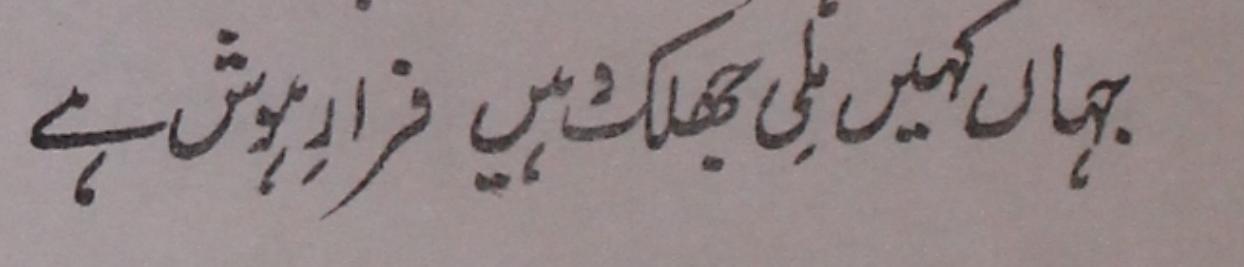 جہاں کہیں ملی جھلک وہیں فرارِ ہوش ہے